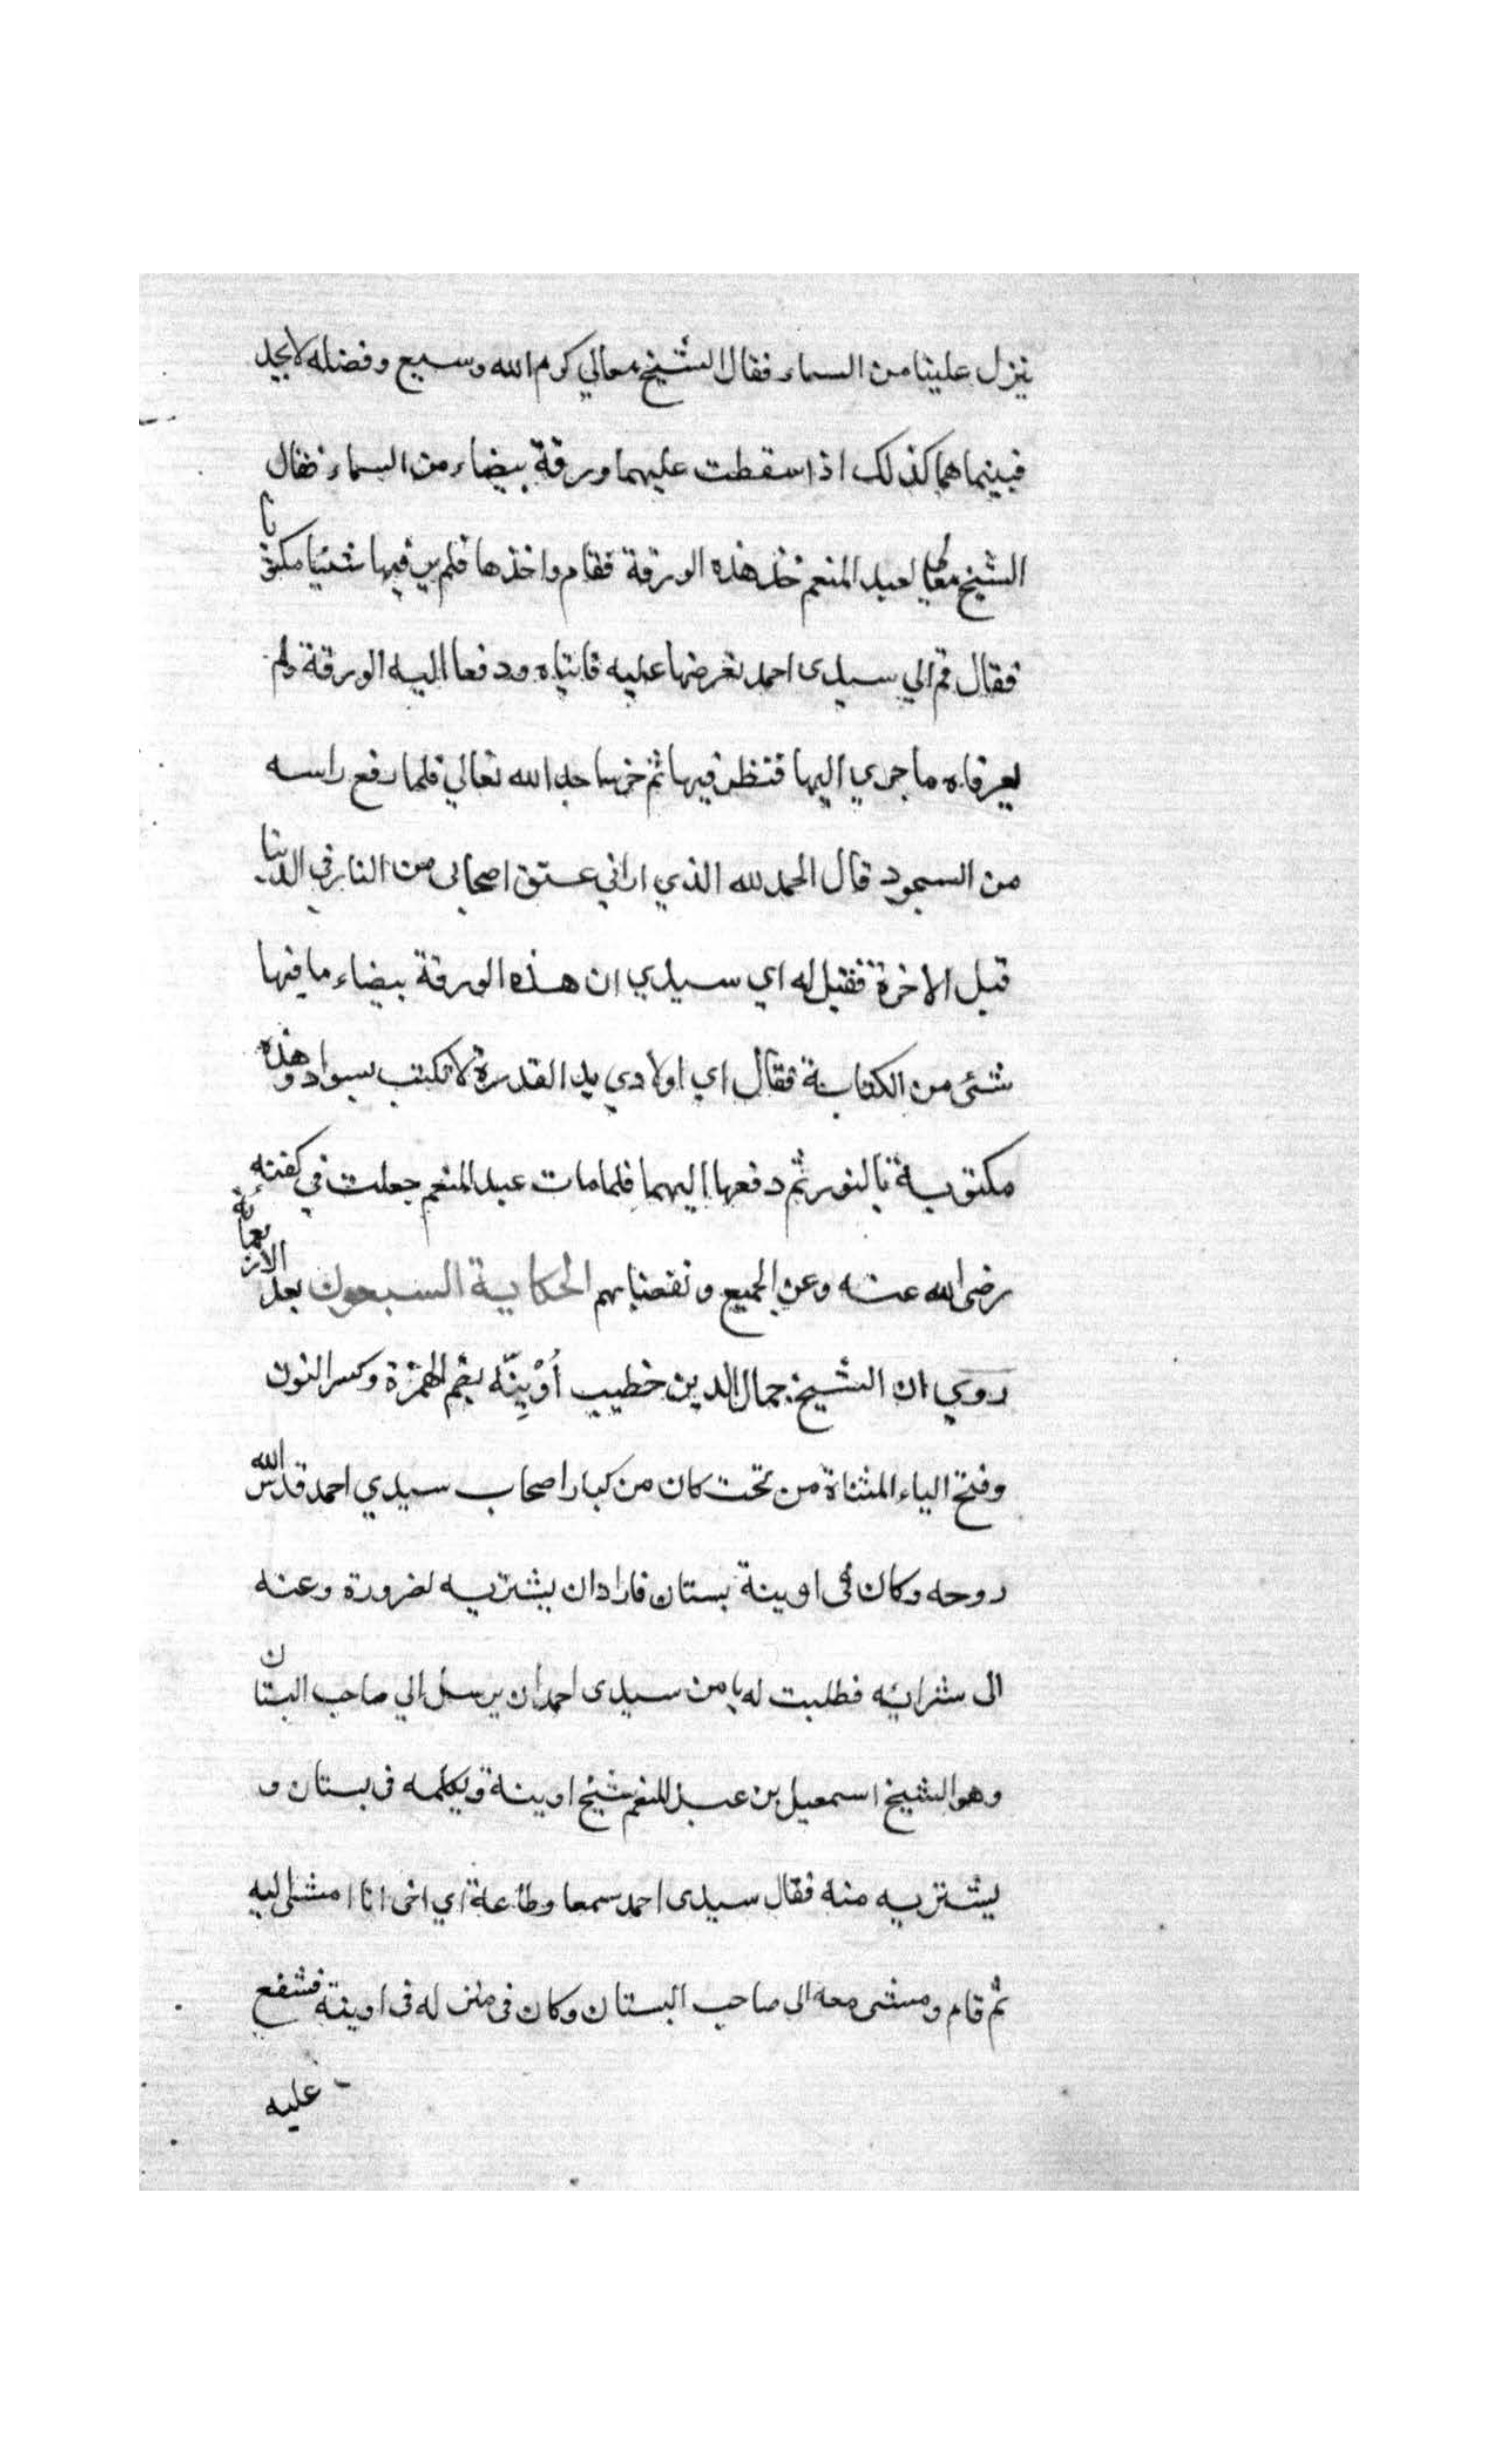 ينزل علينا من السماء فقال الشيخ معالي كرم الله وسيع وفضله لا يحد
فبينما هما كذلك اذا سقطت عليهما ورقة بيضاء من السماء فقال
الشيخ معالي لعبد المنعم خذ هذه الورقة فقام واخذها فلم ير فيها شئيا مكتوبا
فقال قم الي سيدى احمد نعرضها عليه فاتياه ودفعا اليه الورقة ولم
يعرفاه ما جري اليها فنظر فيها ثم خر ساجد الله تعالي فلما رفع راسه
من السجود قال الحمد لله الذي اراني عتق اصحابى من النار في الدنيا
قبل الاخرة فقيل له اي سيدي ان هذه الورقة بيضاء ما فيها
شئ من الكتابة فقال اي اولادي يد القدرة لا تكتب بسواد وهذه
مكتوبة بالنور ثم دفعها اليهما فلما مات عبد المنعم جعلت في كفنه
رضى الله عنه وعن الجميع ونفعنا بهم الحكاية السبعون بعد الاربعمائة
روي ان الشيخ جمال الدين خطيب أوْنِيَّه بضم الهمزة وكسر النون
وفتح الياء المثناة من تحت كان من كبار اصحاب سيدي احمد قدس الله
روحه وكان في اوينة بستان فاراد ان يشتريه لضرورة دعته
الى شرائه فطلبت له يا من سيدى احمد ان يرسل الي صاحب البستان
وهو الشيخ اسمعيل بن عبد المنعم شيخ اوينة ويكلمه في بستان و
يشتريه منه فقال سيدى احمد سمعا وطاعة اي اخى انا امشى اليه
ثم قام ومشى معه الى صاحب البستان وكان في منزله في اوينة فشفع
عليه